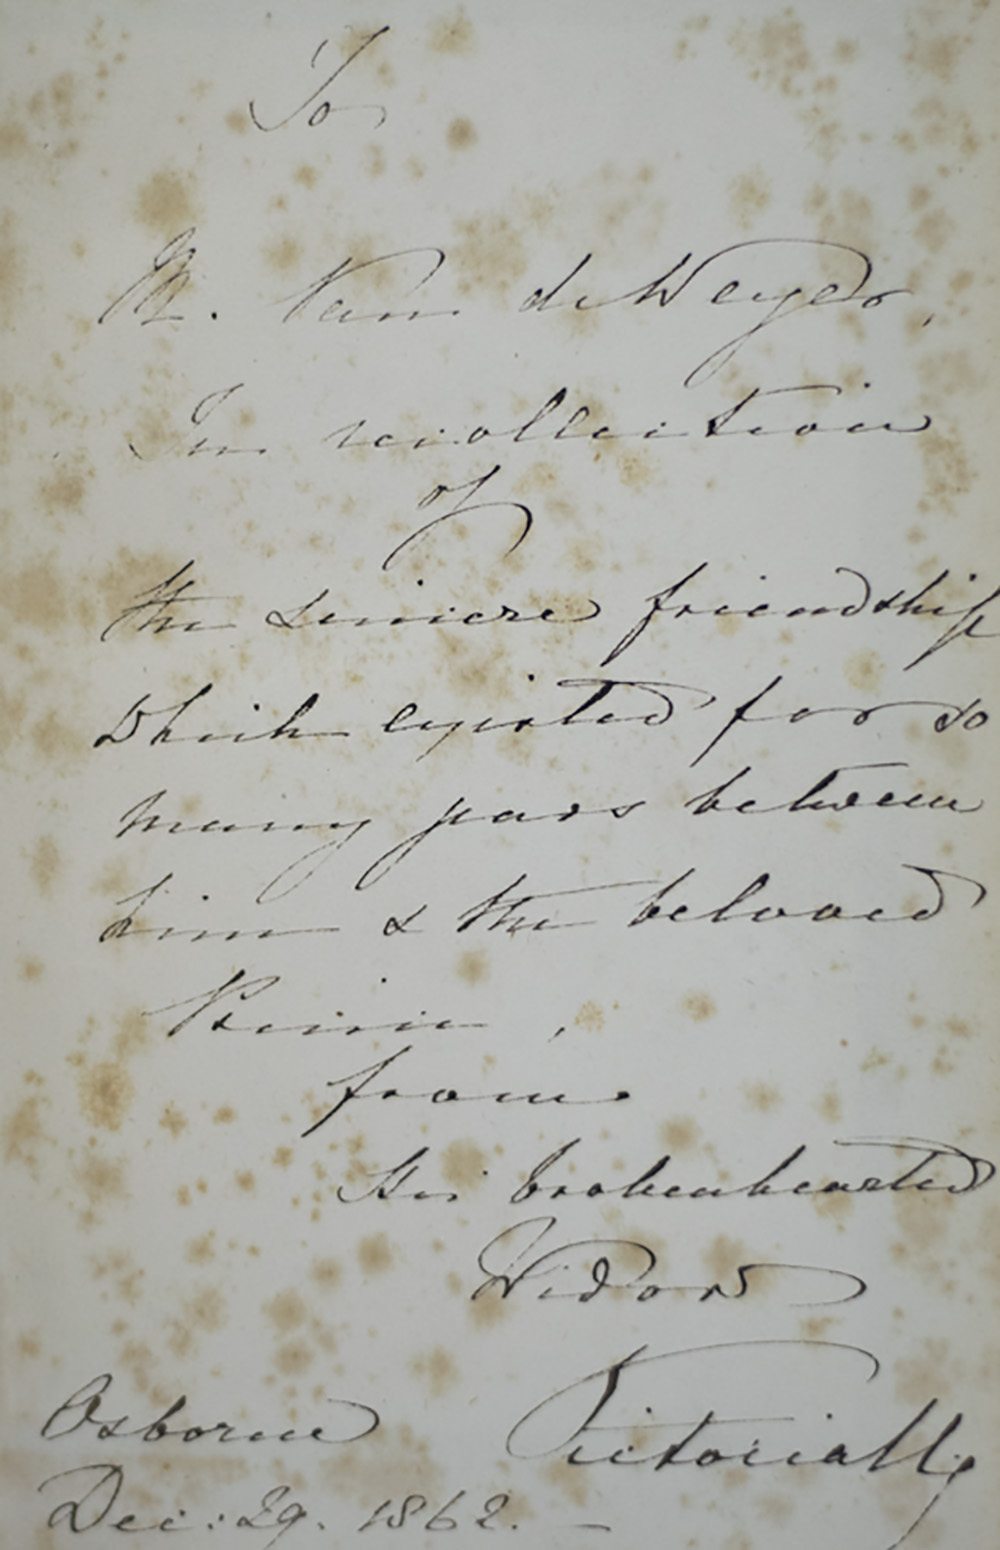 To
M. Van de Weyer,
In recollection
of
the sincere friendship
which existed for so
many years between
him & the beloved
Prince,
from
His brokenhearted
Widow
Victoria R
Osborne
Dec: 29. 1862. —